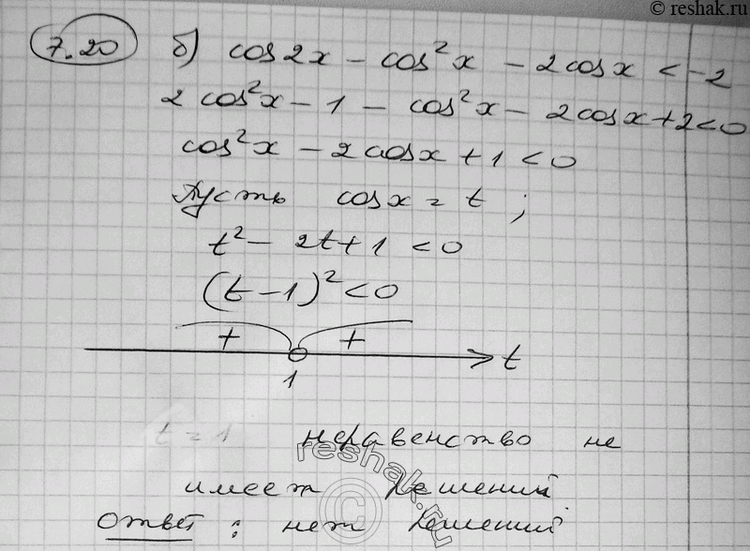 © reshak.ru
7.20 б) cos2x - cos²x - 2cosx < -2
2cos²x - 1 - cos²x - 2cosx + 2 < 0
cos²x - 2cosx + 1 < 0
Пусть cosx = t ;
t² - 2t + 1 < 0
(t - 1)² < 0
+ + t
1
t = 1 неравенство не
имеет решений.
Ответ : нет решений.
reshak.ru
©